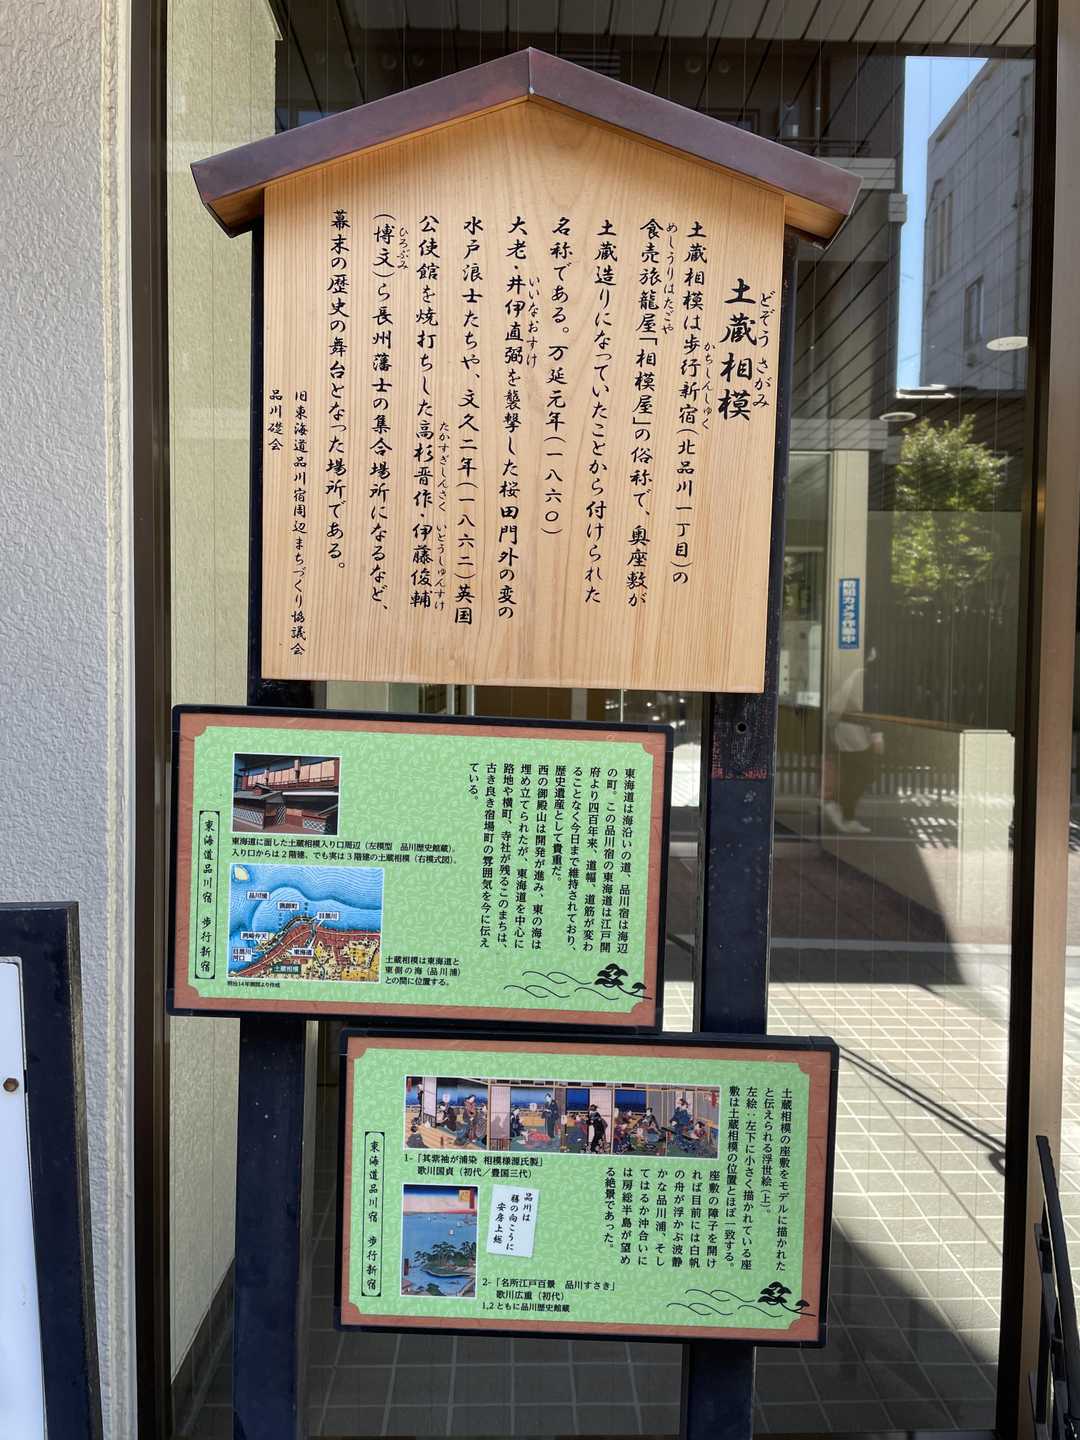 土蔵相模
どぞう さがみ
土蔵相模は歩行新宿（北品川一丁目）の
かちしんしゅく
食売旅籠屋「相模屋」の俗称で、奥座敷が
めしうりはたごや
土蔵造りになっていたことから付けられた
名称である。万延元年（一八六〇）
大老・井伊直弼を襲撃した桜田門外の変の
いいなおすけ
水戸浪士たちや、文久二年（一八六二）英国
公使館を焼打ちした高杉晋作・伊藤俊輔
たかすぎしんさく いとうしゅんすけ
（博文）ら長州藩士の集合場所になるなど、
ひろぶみ
幕末の歴史の舞台となった場所である。
旧東海道品川宿周辺まちづくり協議会
品川礎会
防犯カメラ作動中
東海道は海沿いの道、品川宿は海辺
の町。この品川宿の東海道は江戸開
府より四百年来、道幅、道筋が変わ
ることなく今日まで維持されており、
歴史遺産として貴重だ。
西の御殿山は開発が進み、東の海は
埋め立てられたが、東海道を中心に
路地や横町、寺社が残るこのまちは、
古き良き宿場町の雰囲気を今に伝え
ている。
東海道に面した土蔵相模入り口周辺（左模型 品川歴史館蔵）。
入り口からは２階建、でも実は３階建の土蔵相模（右模式図）。
品川浦
漁師町
目黒川
東海道
土蔵相模
明治14年測図より作成
土蔵相模は東海道と
東側の海（品川浦）
との間に位置する。
東海道品川宿 歩行新宿
土蔵相模の座敷をモデルに描かれた
と伝えられる浮世絵（上）。
左絵：左下に小さく描かれている座
敷は土蔵相模の位置とほぼ一致する。
座敷の障子を開け
れば目前には白帆
の舟が浮かぶ波静
かな品川浦、そし
てはるか沖合いに
は房総半島が望め
る絶景であった。
1-「其紫袖が浦染 相模様源氏製」
歌川国貞（初代／豊国三代）
品川は
膳の向こうに
安房上総
2-「名所江戸百景 品川すさき」
歌川広重（初代）
1,2 ともに品川歴史館蔵
東海道品川宿 歩行新宿